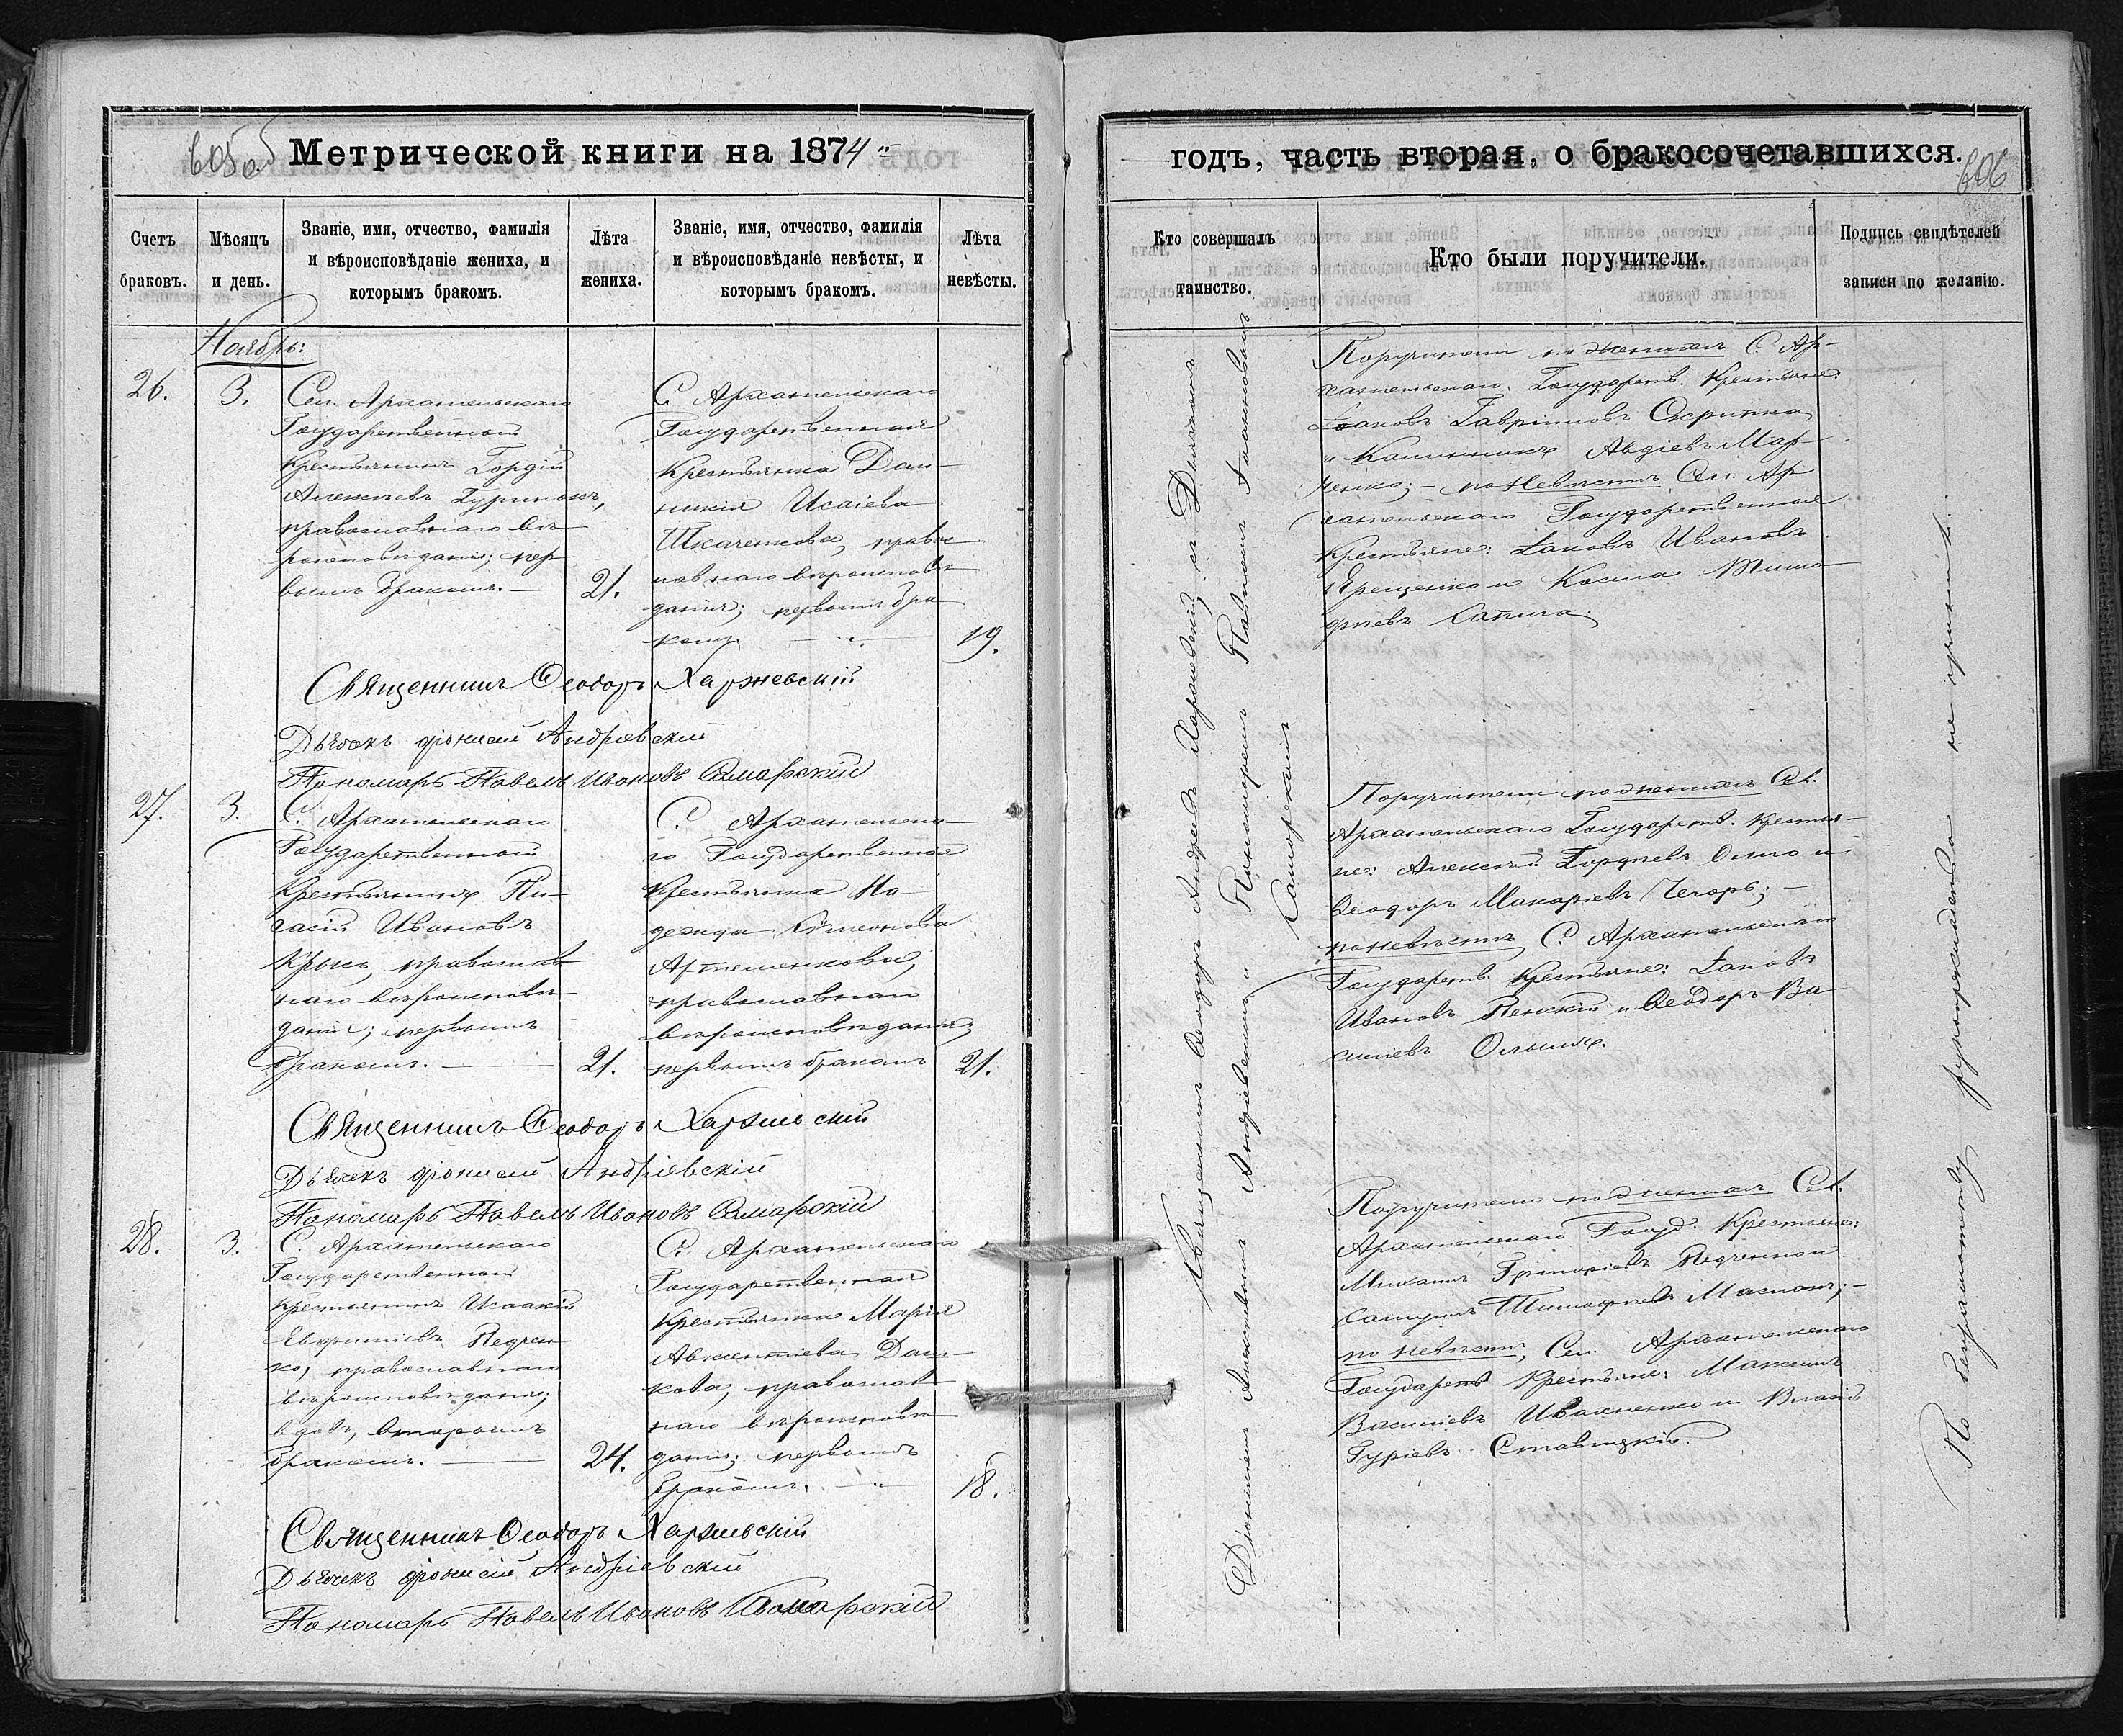 605 об
Метрической книги на 1874
Счетъ браковъ.
Мѣсяцъ и день.
Званіе, имя, отчество, фамилія и вѣроисповѣданіе жениха, и которымъ бракомъ.
Лѣта жениха.
Званіе, имя, отчество, фамилія и вѣроисповѣданіе невѣсты, и которымъ бракомъ.
Лѣта невѣсты.
Ноябрь:
26.
3.
Сел. Архангельскаго
Государственный
Крестьянинъ Гордій
Алексѣевъ
православнаго вѣ-
роисповѣданія; пер-
вымъ бракомъ. —
21.
С. Архангельскаго
Государственная
Крестьянка Дом-
никія Исаіева
Ткаченкова, правос
лавнаго вѣроисповѣ
данія; первымъ бра
комъ — " —
19.
Священникъ Ѳеодоръ Харжевскій
Дьячекъ Діонисій Андріевскій
Пономарь Павелъ Ивановъ Самарскій
27.
3.
С. Архангельскаго
Государственный
Крестьянинъ
Ивановъ
православ
наго вѣроисповѣ
данія; первымъ
бракомъ. —
21.
С. Архангельска-
го Государственная
Крестьянка На-
дежда Симеонова
Артеменкова,
православнаго
вѣроисповѣданія;
первымъ бракомъ
21.
Священникъ Ѳеодоръ Харжевскій
Дьячекъ Діонисій Андріевскій
Пономарь Павелъ Ивановъ Самарскій
28.
3.
С. Архангельскаго
Государственный
Крестьянинъ Исаакій
Евфиміевъ Редчен
ко, православнаго
вѣроисповѣданія;
вдовъ, вторымъ
бракомъ. —
24.
С. Архангельскаго
Государственная
Крестьянка Марія
Авксентіева
кова, православ
наго вѣроисповѣ
данія; первымъ
бракомъ. — " —
18.
Священникъ Ѳеодоръ Харжевскій
Дьячекъ Діонисій Андріевскій
Пономарь Павелъ Ивановъ Самарскій
годъ, часть вторая, о бракосочетавшихся.
606
Кто совершалъ таинство.
Кто были поручители.
Подпись свидѣтелей записи по желанію.
Священникъ Ѳеодоръ Андреевъ Харжевскій, съ Дьячкомъ
Діонисіемъ Алексѣевымъ Андріевскимъ и Пономаремъ Павломъ Іоанновымъ
Самарскимъ
Поручители по женихѣ С. Ар-
хангельскаго Государств. Крестьяне:
Іаковъ Гавріиловъ Скрипка
и Калинникъ Авдіевъ Мар-
ченко; — по невѣстѣ Сел. Ар
хангельскаго Государственные
Крестьяне: Іаковъ Ивановъ
Ярещенко и Косма Тимо
фѣевъ Сапига.
Поручители по женихѣ Сел.
Архангельскаго Государств. Крестья-
не: Алексѣй Гордѣевъ и
Ѳеодоръ Макаріевъ —
по невѣстѣ, С. Архангельскаго
Государств. Крестьяне: Іаковъ
Ивановъ и Ѳеодоръ Ва
силіевъ
Поручители по женихѣ Сел.
Архангельскаго Госуд. Крестьяне:
Михаилъ Григоріевъ Редченко и
Тимофѣевъ —
по невѣстѣ, Сел. Архангельскаго
Государств Крестьяне: Максимъ
Василіевъ Ивахненко и Власій
Гуріевъ Ставицкій.
По безграмотству рукоприкладства не учинили.